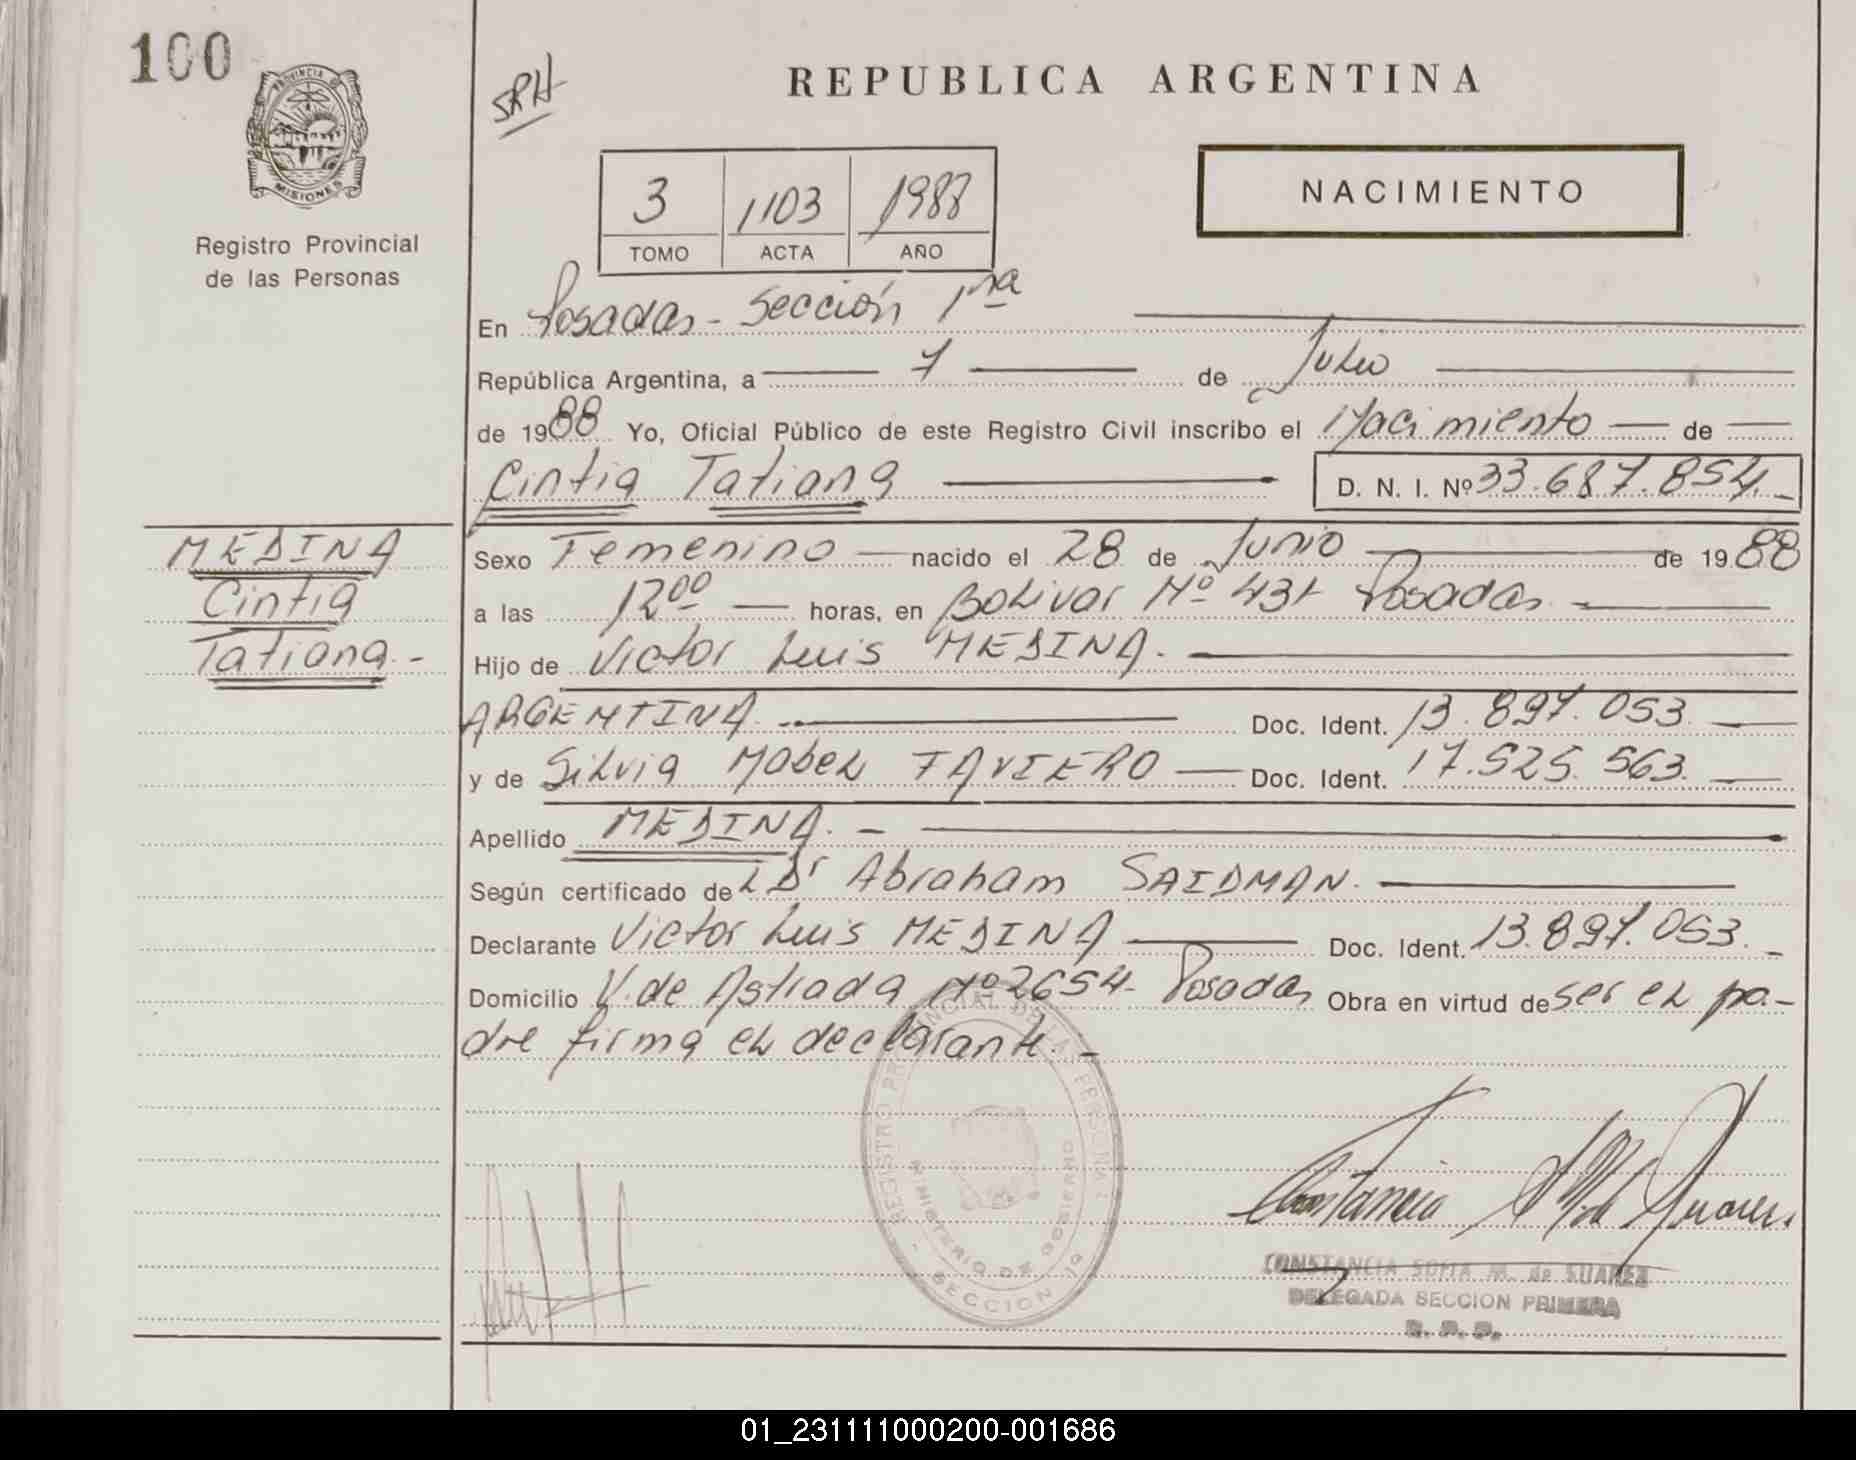 100
PROVINCIA DE
MISIONES
Registro Provincial
de las Personas
SRH
REPUBLICA ARGENTINA
3 1103 1988
TOMO ACTA AÑO
NACIMIENTO
En Posadas - Sección 1ra
República Argentina, a 7 de Julio
de 1988 Yo, Oficial Público de este Registro Civil inscribo el Nacimiento de
Cintia Tatiana D. N. I. Nº 33.687.854.-
MEDINA
Cintia
Tatiana.-
Sexo Femenino nacido el 28 de Junio de 1988
a las 12 00 horas, en Bolivar Nº 431 Posadas
Hijo de Victor Luis MEDINA.
ARGENTINA. Doc. Ident. 13.897.053
y de Silvia Mabel TAVIERO Doc. Ident. 17.525.563.
Apellido MEDINA.-
Según certificado del Dr Abraham SAIDMAN.
Declarante Victor Luis MEDINA Doc. Ident. 13.897.053.-
Domicilio V. de Astrada Nº 2654- Posadas Obra en virtud de ser el pa-
dre firma el declarante.-
REGISTRO PROVINCIAL DE LAS PERSONAS
MINISTERIO DE GOBIERNO
SECCION 1a
Constancia S M de Suarez
CONSTANCIA SOFIA M. de SUAREZ
DELEGADA SECCION PRIMERA
R. P. P.
01_231111000200-001686